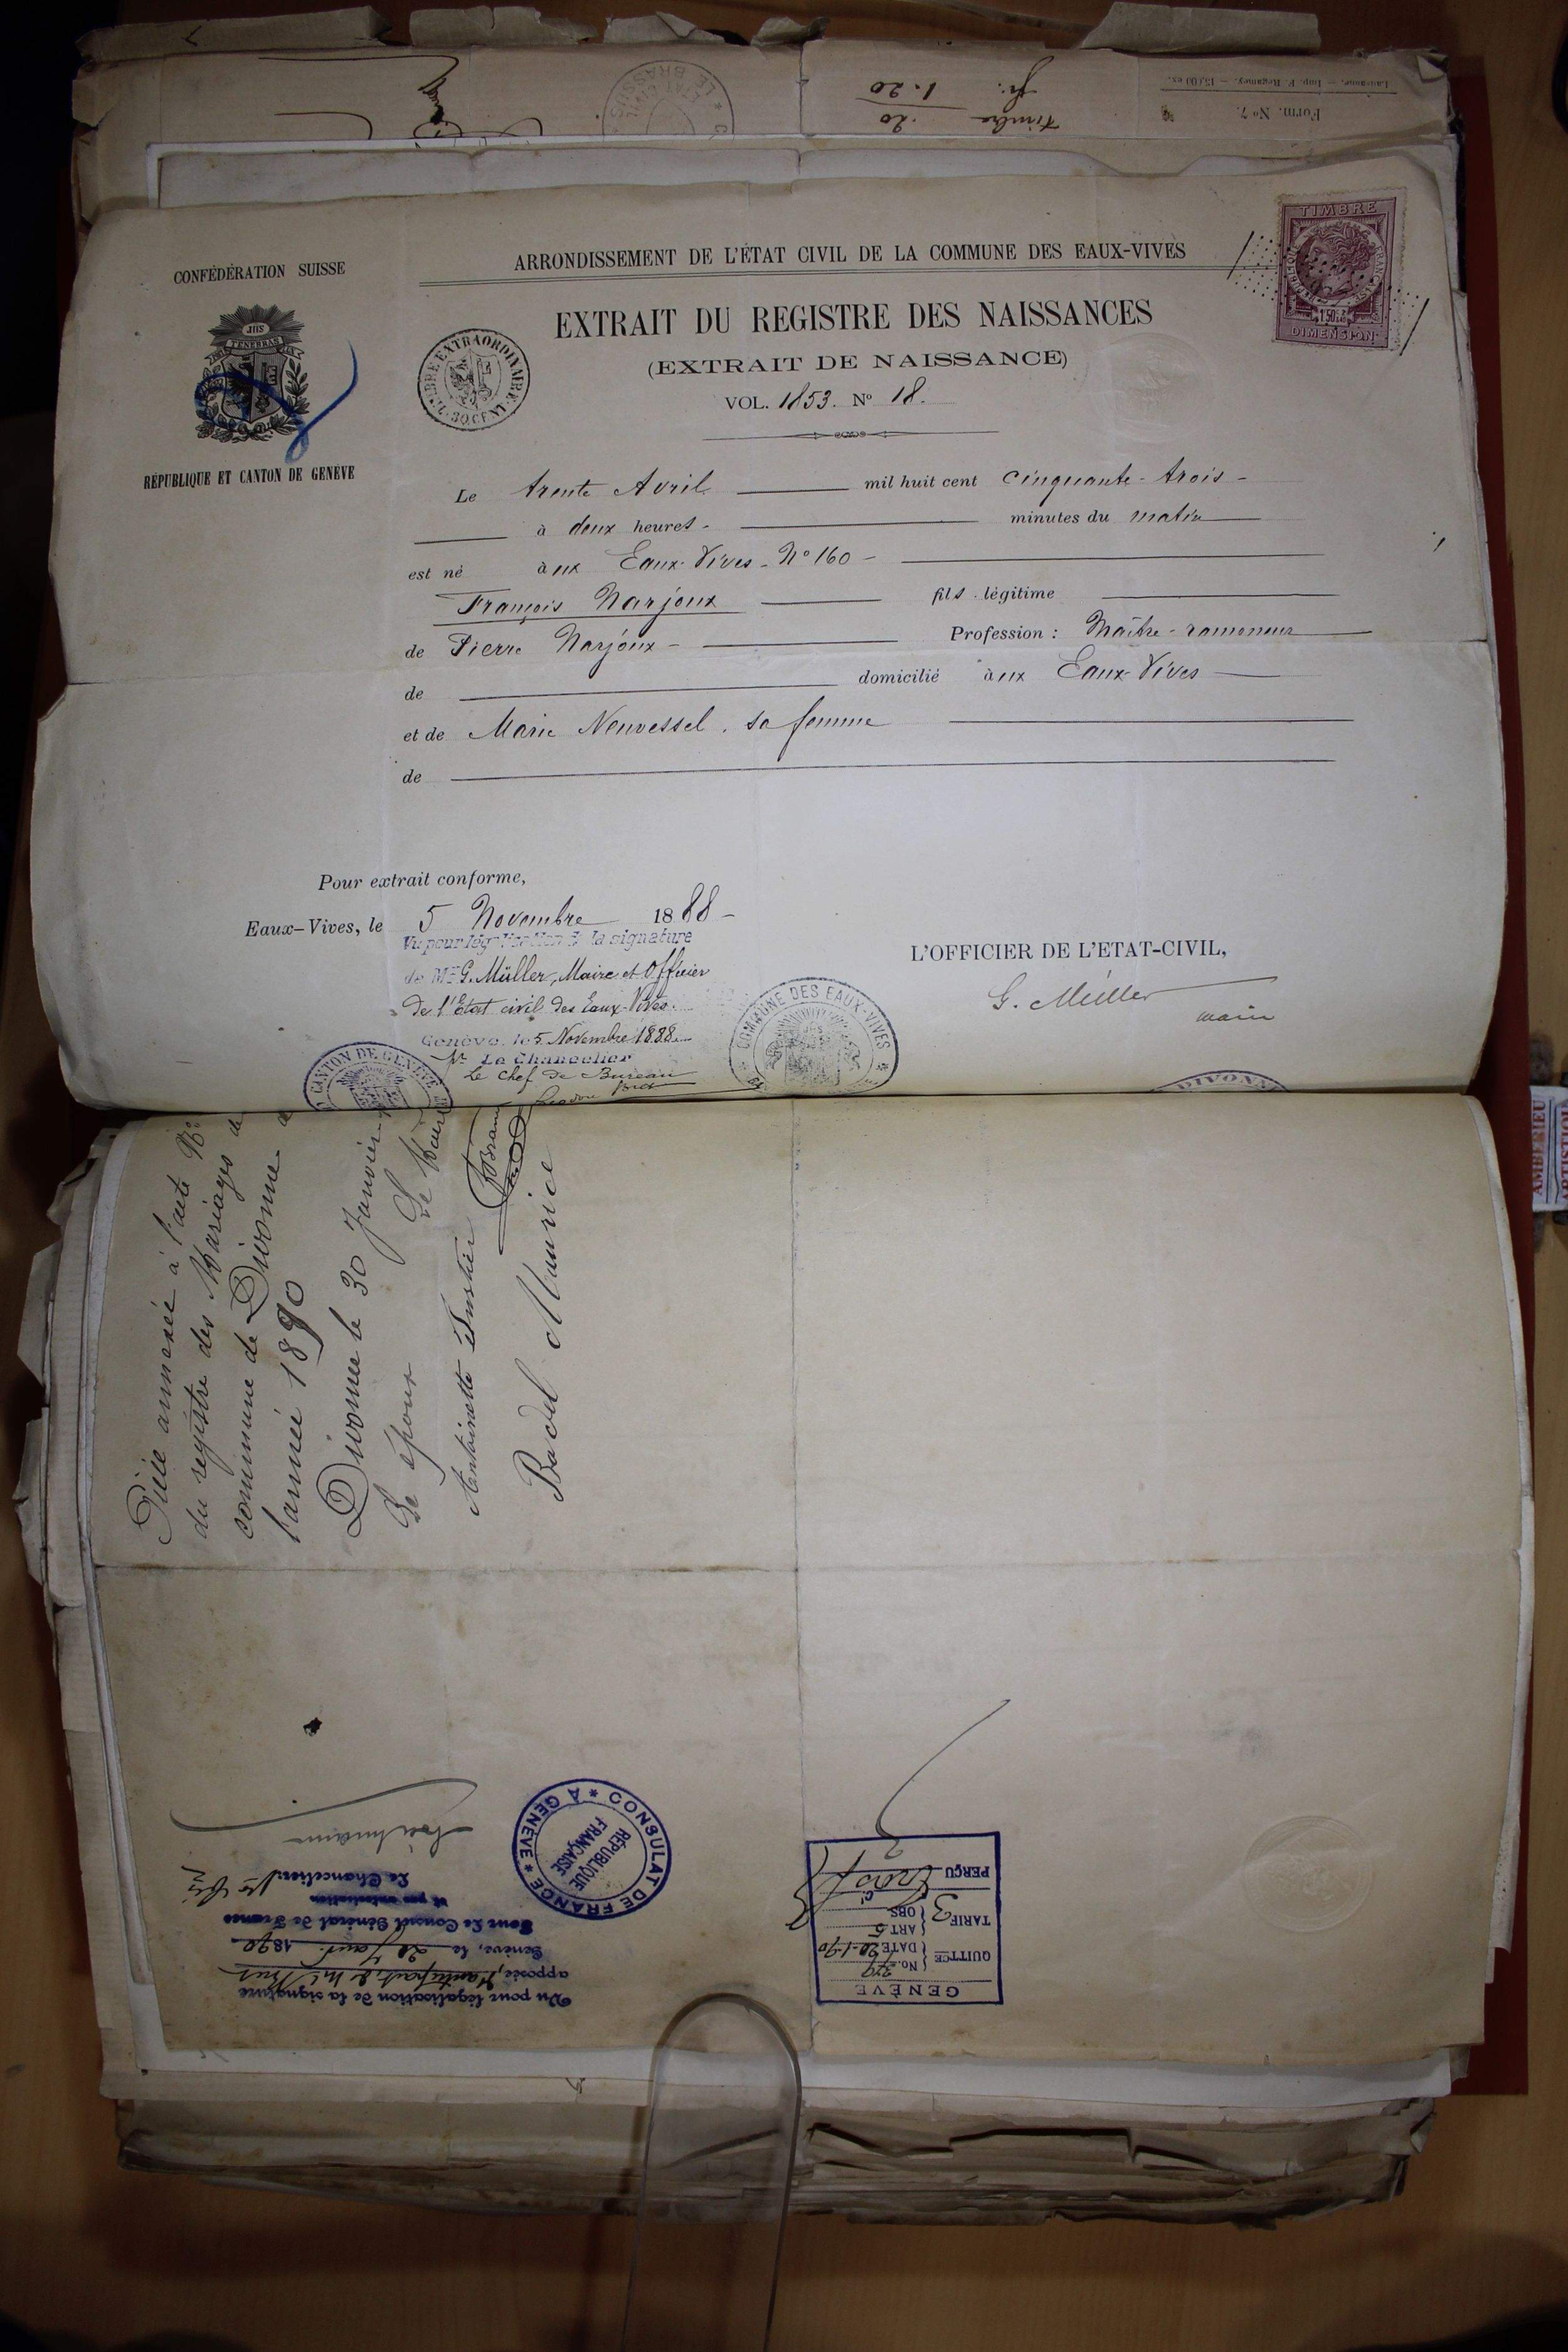 Form. No 7.
Lausanne. — Imp. F. Regamey. — 15,000 ex.
Timbre 20
fr. 1.20
ETAT CIVIL
LE BRASSUS
TIMBRE
DIMENSION
CONFÉDÉRATION SUISSE
JHS
TENEBRAS
RÉPUBLIQUE ET CANTON DE GENÈVE
ARRONDISSEMENT DE L'ÉTAT CIVIL DE LA COMMUNE DES EAUX-VIVES
EXTRAIT DU REGISTRE DES NAISSANCES
(EXTRAIT DE NAISSANCE)
TIMBRE EXTRAORDINAIRE
VOL. 1853. No 18.
Le trente Avril mil huit cent cinquante-trois-
à deux heures- minutes du matin
est né àux Eaux-Vives - No 160 -
François Narjoux fils légitime
de Pierre Narjoux - Profession : Maître-ramoneur
de domicilié àux Eaux-Vives
et de Marie Neuvessel, sa femme
de
Pour extrait conforme,
Eaux-Vives, le 5 Novembre 1888-
Vu pour légalisation de la signature
de Mr G. Müller, Maire et Officier
de l'Etat civil des Eaux-Vives.
Genève, le 5 Novembre 1888
Pr Le Chancelier
Le Chef de Bureau
L'OFFICIER DE L'ETAT-CIVIL,
G. Müller
maire
COMMUNE DES EAUX-VIVES
CANTON DE GENÈVE
DIVONNE
AMBERIEU
Pièce annexée à l'acte No
du registre des Mariages de
commune de Divonne
l'année 1890
Divonne le 30 Janvier
Le époux Le Maire
Antoinette
Badel Maurice
Vu pour légalisation de la signature
apposée, d'autre part, de Mr
Genève, le 20 Janv. 1890
Pour Le Consul Général de France
et par autorisation
Le Chancelier
CONSULAT DE FRANCE * À GENÈVE *
RÉPUBLIQUE
FRANÇAISE
GENÈVE
QUITTCE No 379
DATE 20-1-90
TARIF 3 ART 5
OBS
PERÇU